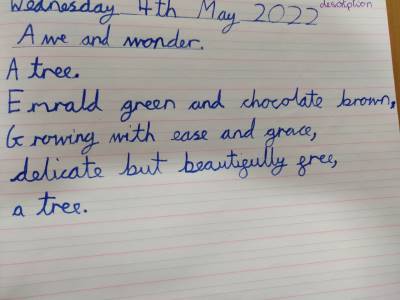 Wednesday 4th May 2022 description
Awe and wonder.
A tree.
Emrald green and chocolate brown,
Growing with ease and grace,
delicate but beautifully free,
a tree.